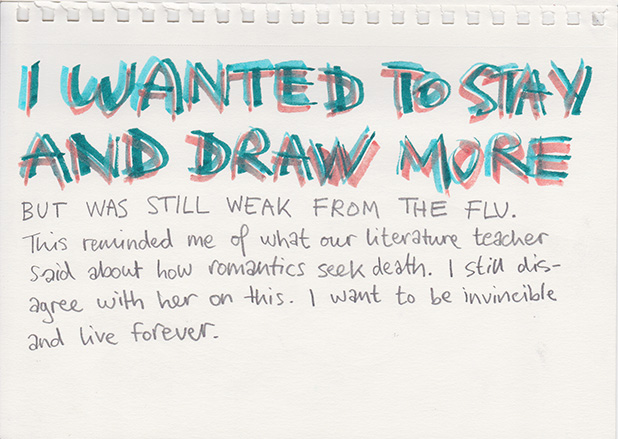 I WANTED TO STAY
AND DRAW MORE
BUT WAS STILL WEAK FROM THE FLU.
This reminded me of what our literature teacher
said about how romantics seek death. I still dis-
agree with her on this. I want to be invincible
and live forever.